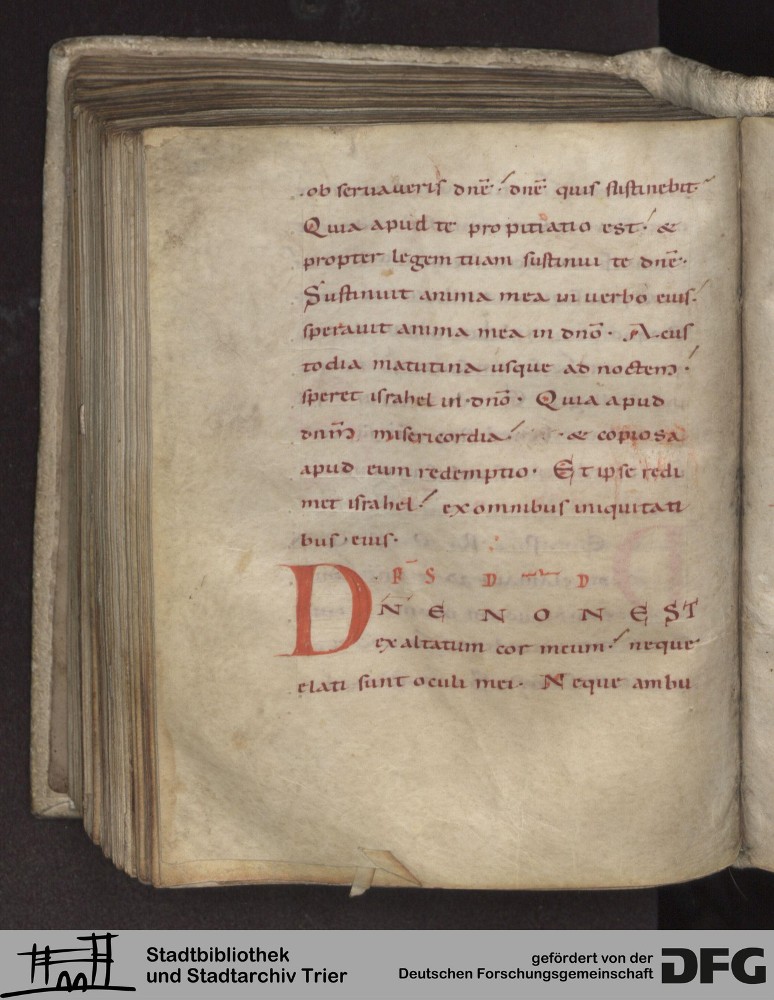 obseruaueris dnē· dnē quis sustinebit·
Quia apud te propitiatio est· &
propter legem tuam sustinui te dnē·
Sustinuit anima mea in uerbo eius·
sperauit anima mea in dnō· A cus
todia matutina usque ad noctem·
speret israhel in dnō· Quia apud
dnm̄ misericordia· & copiosa
apud eum redemptio· Et ipse redi
met israhel· ex omnibus iniquitati
bus eius·
D
NE NON EST
exaltatum cor meum· neque
elati sunt oculi mei· Neque ambu
Stadtbibliothek
und Stadtarchiv Trier
gefördert von der
Deutschen Forschungsgemeinschaft
DFG